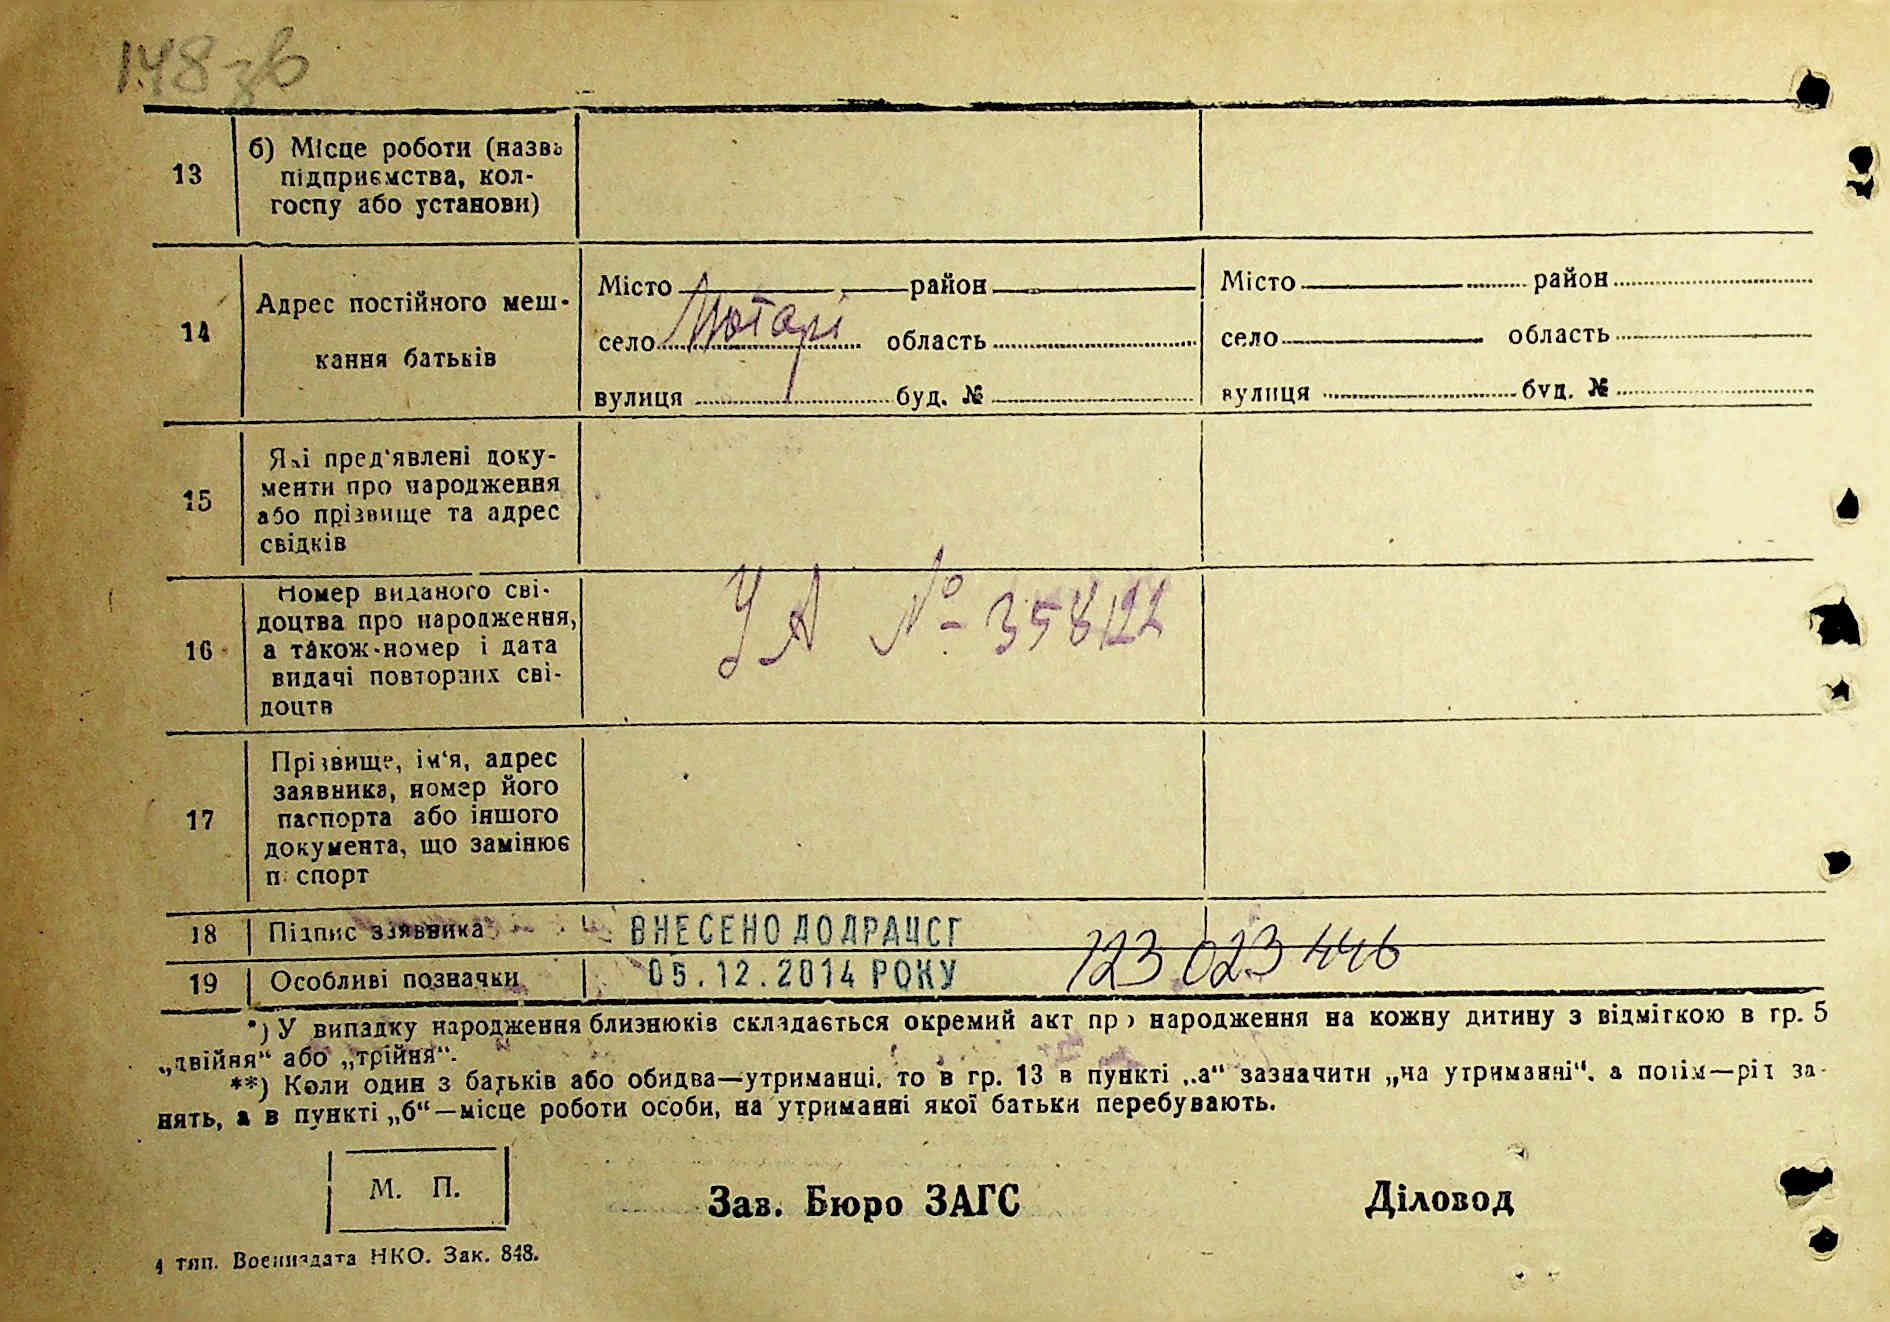 148 зв
13
б) Місце роботи (назва
підприємства, кол-
госпу або установи)
14
Адрес постійного меш-
кання батьків
Місто район
село область
вулиця буд. №
Місто район
село область
вулиця буд. №
15
Які пред'явлені доку-
менти про народження
або прізвище та адрес
свідків
16
Номер виданого сві-
доцтва про народження,
а також номер і дата
видачі повторних сві-
доцтв
УА № 358122
17
Прізвище, ім'я, адрес
заявника, номер його
паспорта або іншого
документа, що замінює
п спорт
18 Підпис заявника
ВНЕСЕНО ДО ДРАЦСГ
19 Особливі позначки
05.12.2014 РОКУ
123 023 446
*) У випадку народження близнюків складається окремий акт про народження на кожну дитину з відміткою в гр. 5
„двійня“ або „трійня“.
**) Коли один з батьків або обидва—утриманці, то в гр. 13 в пункті „а“ зазначити „на утриманні“, а потім—рід за-
нять, а в пункті „б“—місце роботи особи, на утриманні якої батьки перебувають.
М. П.
Зав. Бюро ЗАГС
Діловод
4 тип. Воениздата НКО. Зак. 848.